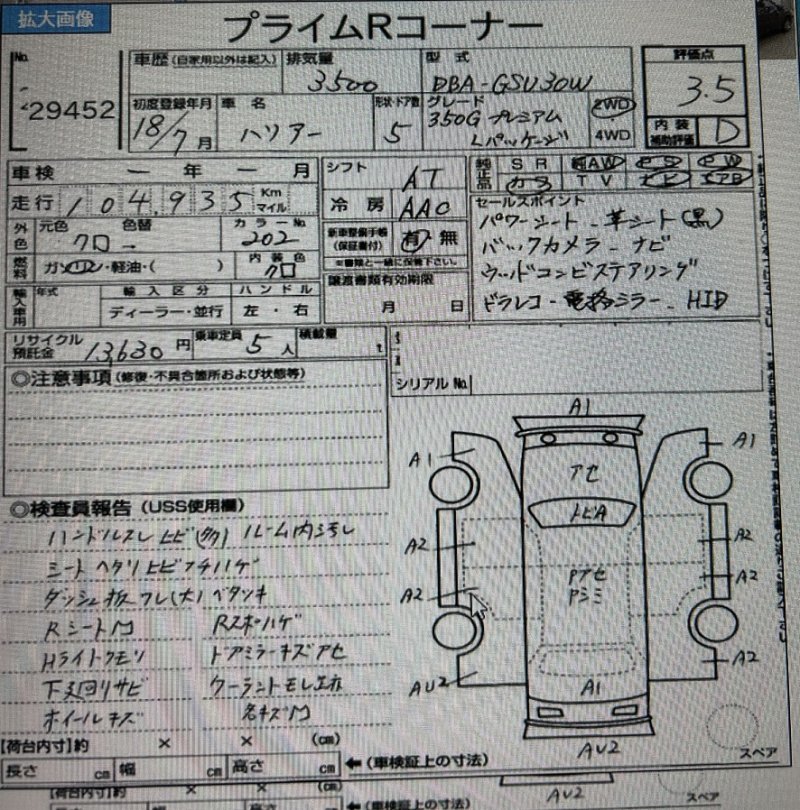 拡大画像
プライムRコーナー
No.
29452
車歴 (自家用以外は記入)
排気量
3500
型式
DBA-GSU30W
評価点
3.5
初度登録年月
18/7月
車名
ハリアー
形状・ドア数
5
グレード
350G プレミアム
Lパッケージ
2WD
4WD
内装
補助評価
D
車検 ー 年 ー 月
シフト
AT
純正品
SR AW PS PW
カラ TV ナビ エアB
走行 104,935 Km
マイル
冷房 AAC
セールスポイント
パワーシート - 革シート(黒)
バックカメラ - ナビ
ウッドコンビステアリング
ドラレコ - 電格ミラー - HID
外色
元色
クロ
色替
ー
カラーNo.
202
新車整備手帳
(保証書付)
有 無
※書類と一緒に保管下さい。
燃料
ガソリン・軽油・( )
内装色
クロ
譲渡書類有効期限
月 日
輸入車用
年式
輸入区分
ディーラー・並行
ハンドル
左・右
リサイクル
預託金
13,630 円
乗車定員
5人
積載量
t
シリアルNo.
◎注意事項 (修復・不具合箇所および状態等)
◎検査員報告 (USS使用欄)
ハンドルスレ ヒビ(多) ルーム内ヨゴレ
シート ヘタリ ヒビ コゲ ハゲ
ダッシュ板フレ(大) ベタツキ
Rシート
Hライトクモリ
ドアミラーキズアセ
下廻りサビ
クーラントモレ
ホイールキズ
各キズ
A1
A1
A1
アセ
トビA
A2
A2
Pアセ
Pシミ
A2
A2
A2
AU2
A1
AU2
スペア
【荷台内寸】約 × × (cm)
長さ cm 幅 cm 高さ cm ←(車検証上の寸法)
AU2
スペア
【荷台内寸】約 × × (cm)
←(車検証上の寸法)